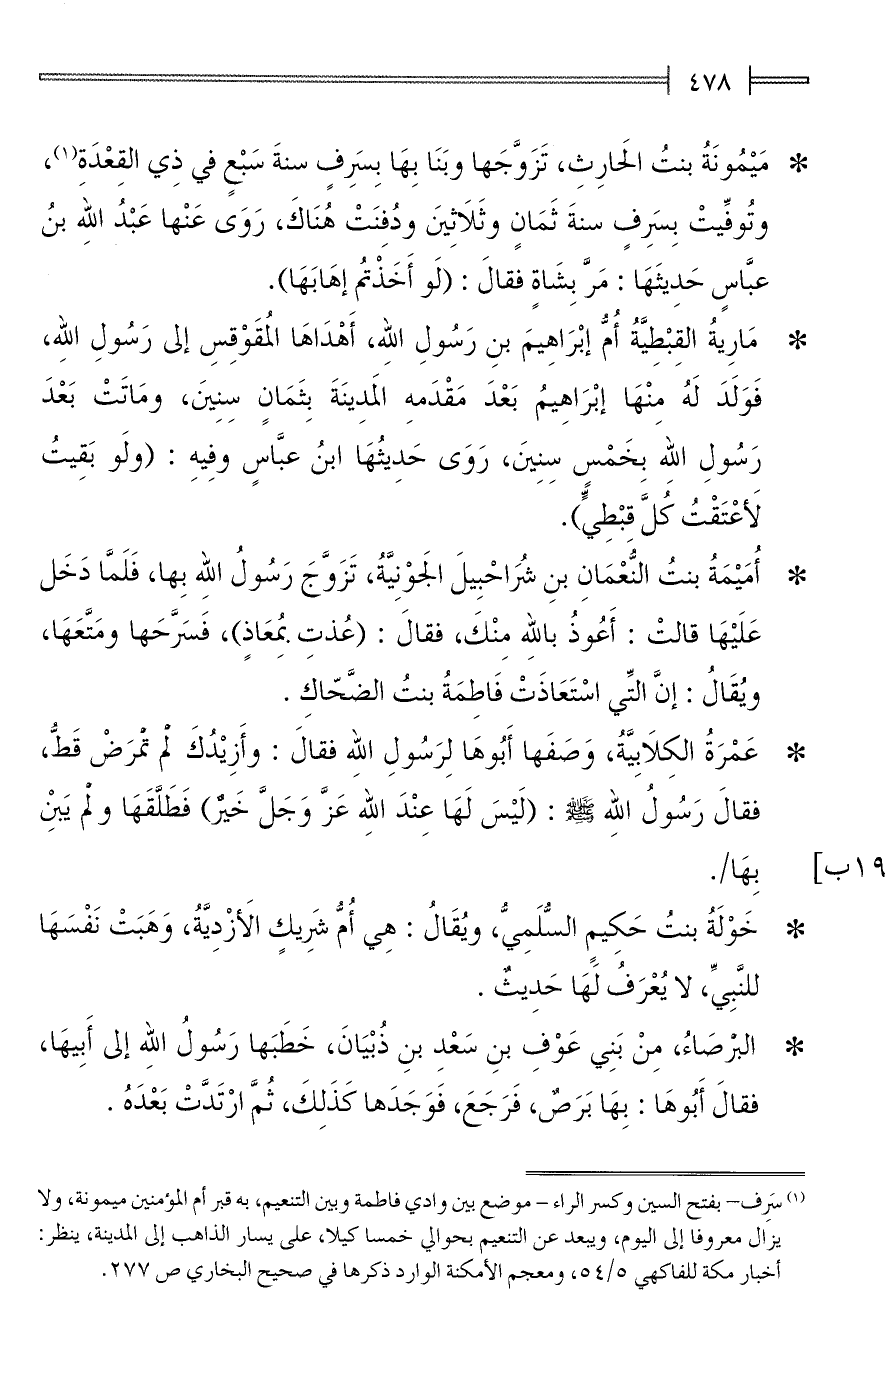 ٤٧٨
* مَيْمُونَةُ بنتُ الحَارِثِ، تَزَوَّجَها وبَنَا بِهَا بِسَرِفٍ سنةَ سَبْعٍ في ذِي القِعْدَةِ(١)،
وتُوفِّيتْ بِسَرِفٍ سنةَ ثَمَانٍ وثَلَاثِينَ ودُفنَتْ هُنَاكَ، رَوَى عَنْها عَبْدُ اللهِ بنُ
عبَّاسٍ حَدِيثَهَا : مَرَّ بِشَاةٍ فقالَ : (لَو أَخَذْتُم إهَابَهَا).
* مَارِيةُ القِبْطيَّةُ أُمُّ إبْرَاهِيمَ بنِ رَسُولِ اللهِ، أَهْدَاهَا المُقَوْقِسِ إلى رَسُولِ اللهِ،
فَوَلَدَ لَهُ مِنْهَا إبْرَاهِيمُ بَعْدَ مَقْدَمِهِ المَدِينَةَ بِثَمَانِ سِنِينَ، ومَاتَتْ بَعْدَ
رَسُولِ اللهِ بِخَمْسِ سِنِينَ، رَوَى حَدِيثُهَا ابنُ عبَّاسٍ وفِيهِ : (ولَو بَقِيتُ
لَأعْتَقْتُ كُلَّ قِبْطِيٍّ).
* أُمَيْمَةُ بنتُ النُّعْمَانِ بنِ شُرَاحْبِيلَ الجَوْنِيَّةُ، تَزَوَّجَ رَسُولُ اللهِ بِها، فَلَمَّا دَخَل
عَلَيْهَا قالتْ : أَعُوذُ باللهِ مِنْكَ، فقالَ : (عُذتِ بِمُعَاذٍ)، فَسَرَّحَها ومَتَّعَهَا،
ويُقَالُ : إنَّ التِّي اسْتَعَاذَتْ فَاطِمَةُ بنتُ الضَّحّاكِ .
* عَمْرَةُ الكِلَابِيَّةُ، وَصَفَها أَبُوهَا لِرَسُولِ اللهِ فقالَ : وأَزِيْدُكَ لَمْ تَمْرَضْ قَطُّ،
فقالَ رَسُولُ اللهِ ﷺ : (لَيْسَ لَهَا عِنْدَ اللهِ عَزَّ وَجَلَّ خَيرٌ) فَطَلَّقَهَا ولَمْ يَبِنْ
بِهَا/. [١٩ب
* خَوْلَةُ بنتُ حَكِيمٍ السُّلَميُّ، ويُقَالُ : هِي أُمُّ شَرِيكٍ الَأزْدِيَّةُ، وَهَبَتْ نَفْسَهَا
للنَّبِيِّ، لا يُعْرَفُ لَهَا حَدِيثٌ .
* البَرْصَاءُ، مِنْ بَنِي عَوْفِ بنِ سَعْدِ بنِ ذُبْيَانَ، خَطَبَها رَسُولُ اللهِ إلى أَبِيهَا،
فقالَ أَبُوهَا : بِهَا بَرَصٌ، فَرَجَعَ، فَوَجَدَها كَذَلِكَ، ثُمَّ ارْتَدَّتْ بَعْدَهُ .
(١) سَرِف– بفتح السين وكسر الراء – موضع بين وادي فاطمة وبين التنعيم، به قبر أم المؤمنين ميمونة، ولا
يزال معروفا إلى اليوم، ويبعد عن التنعيم بحوالي خمسا كيلا، على يسار الذاهب إلى المدينة، ينظر:
أخبار مكة للفاكهي ٥/ ٥٤، ومعجم الأمكنة الوارد ذكرها في صحيح البخاري ص ٢٧٧.